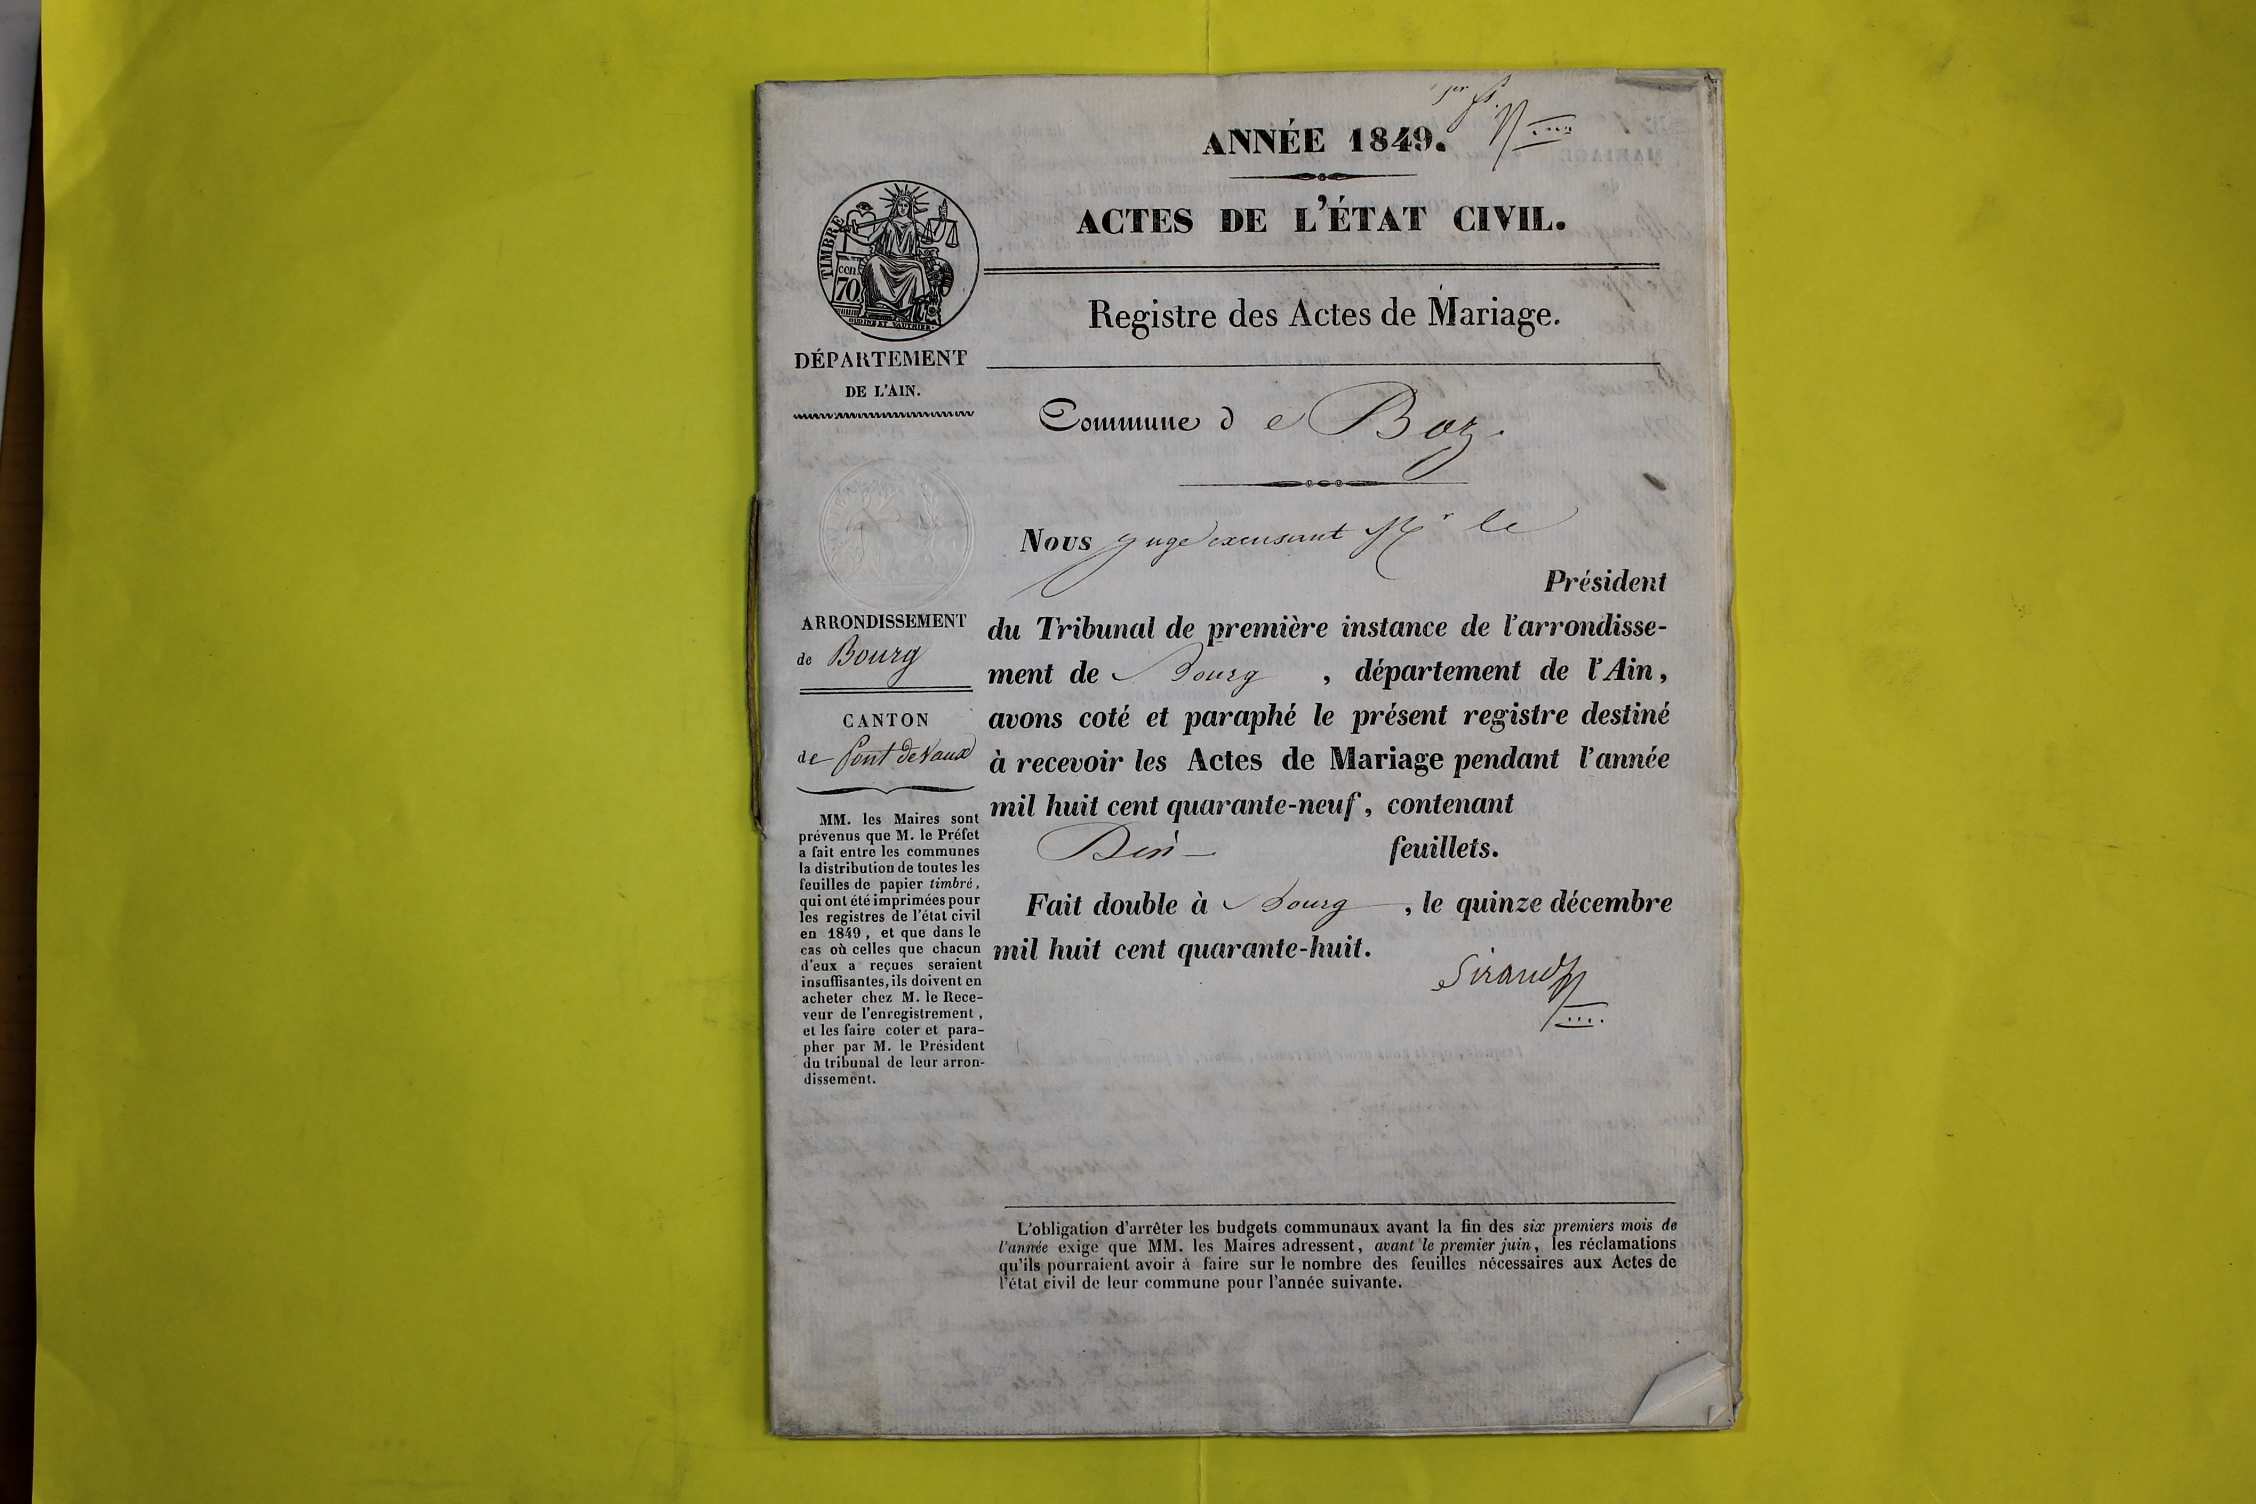 1er ft.
ANNÉE 1849.
ACTES DE L'ÉTAT CIVIL.
Registre des Actes de Mariage.
TIMBRE
cen.
70
DÉPARTEMENT
DE L'AIN.
ARRONDISSEMENT
de Bourg
CANTON
de Pont de Vaux
MM. les Maires sont
prévenus que M. le Préfet
a fait entre les communes
la distribution de toutes les
feuilles de papier timbré,
qui ont été imprimées pour
les registres de l'état civil
en 1849, et que dans le
cas où celles que chacun
d'eux a reçues seraient
insuffisantes, ils doivent en
acheter chez M. le Rece-
veur de l'enregistrement,
et les faire coter et para-
pher par M. le Président
du tribunal de leur arron-
dissement.
Commune de Boz.
Nous juge excusant Mr le
Président
du Tribunal de première instance de l'arrondisse-
ment de Bourg, département de l'Ain,
avons coté et paraphé le présent registre destiné
à recevoir les Actes de Mariage pendant l'année
mil huit cent quarante-neuf, contenant
feuillets.
Fait double à Bourg, le quinze décembre
mil huit cent quarante-huit.
Sirand
L'obligation d'arrêter les budgets communaux avant la fin des six premiers mois de
l'année exige que MM. les Maires adressent, avant le premier juin, les réclamations
qu'ils pourraient avoir à faire sur le nombre des feuilles nécessaires aux Actes de
l'état civil de leur commune pour l'année suivante.